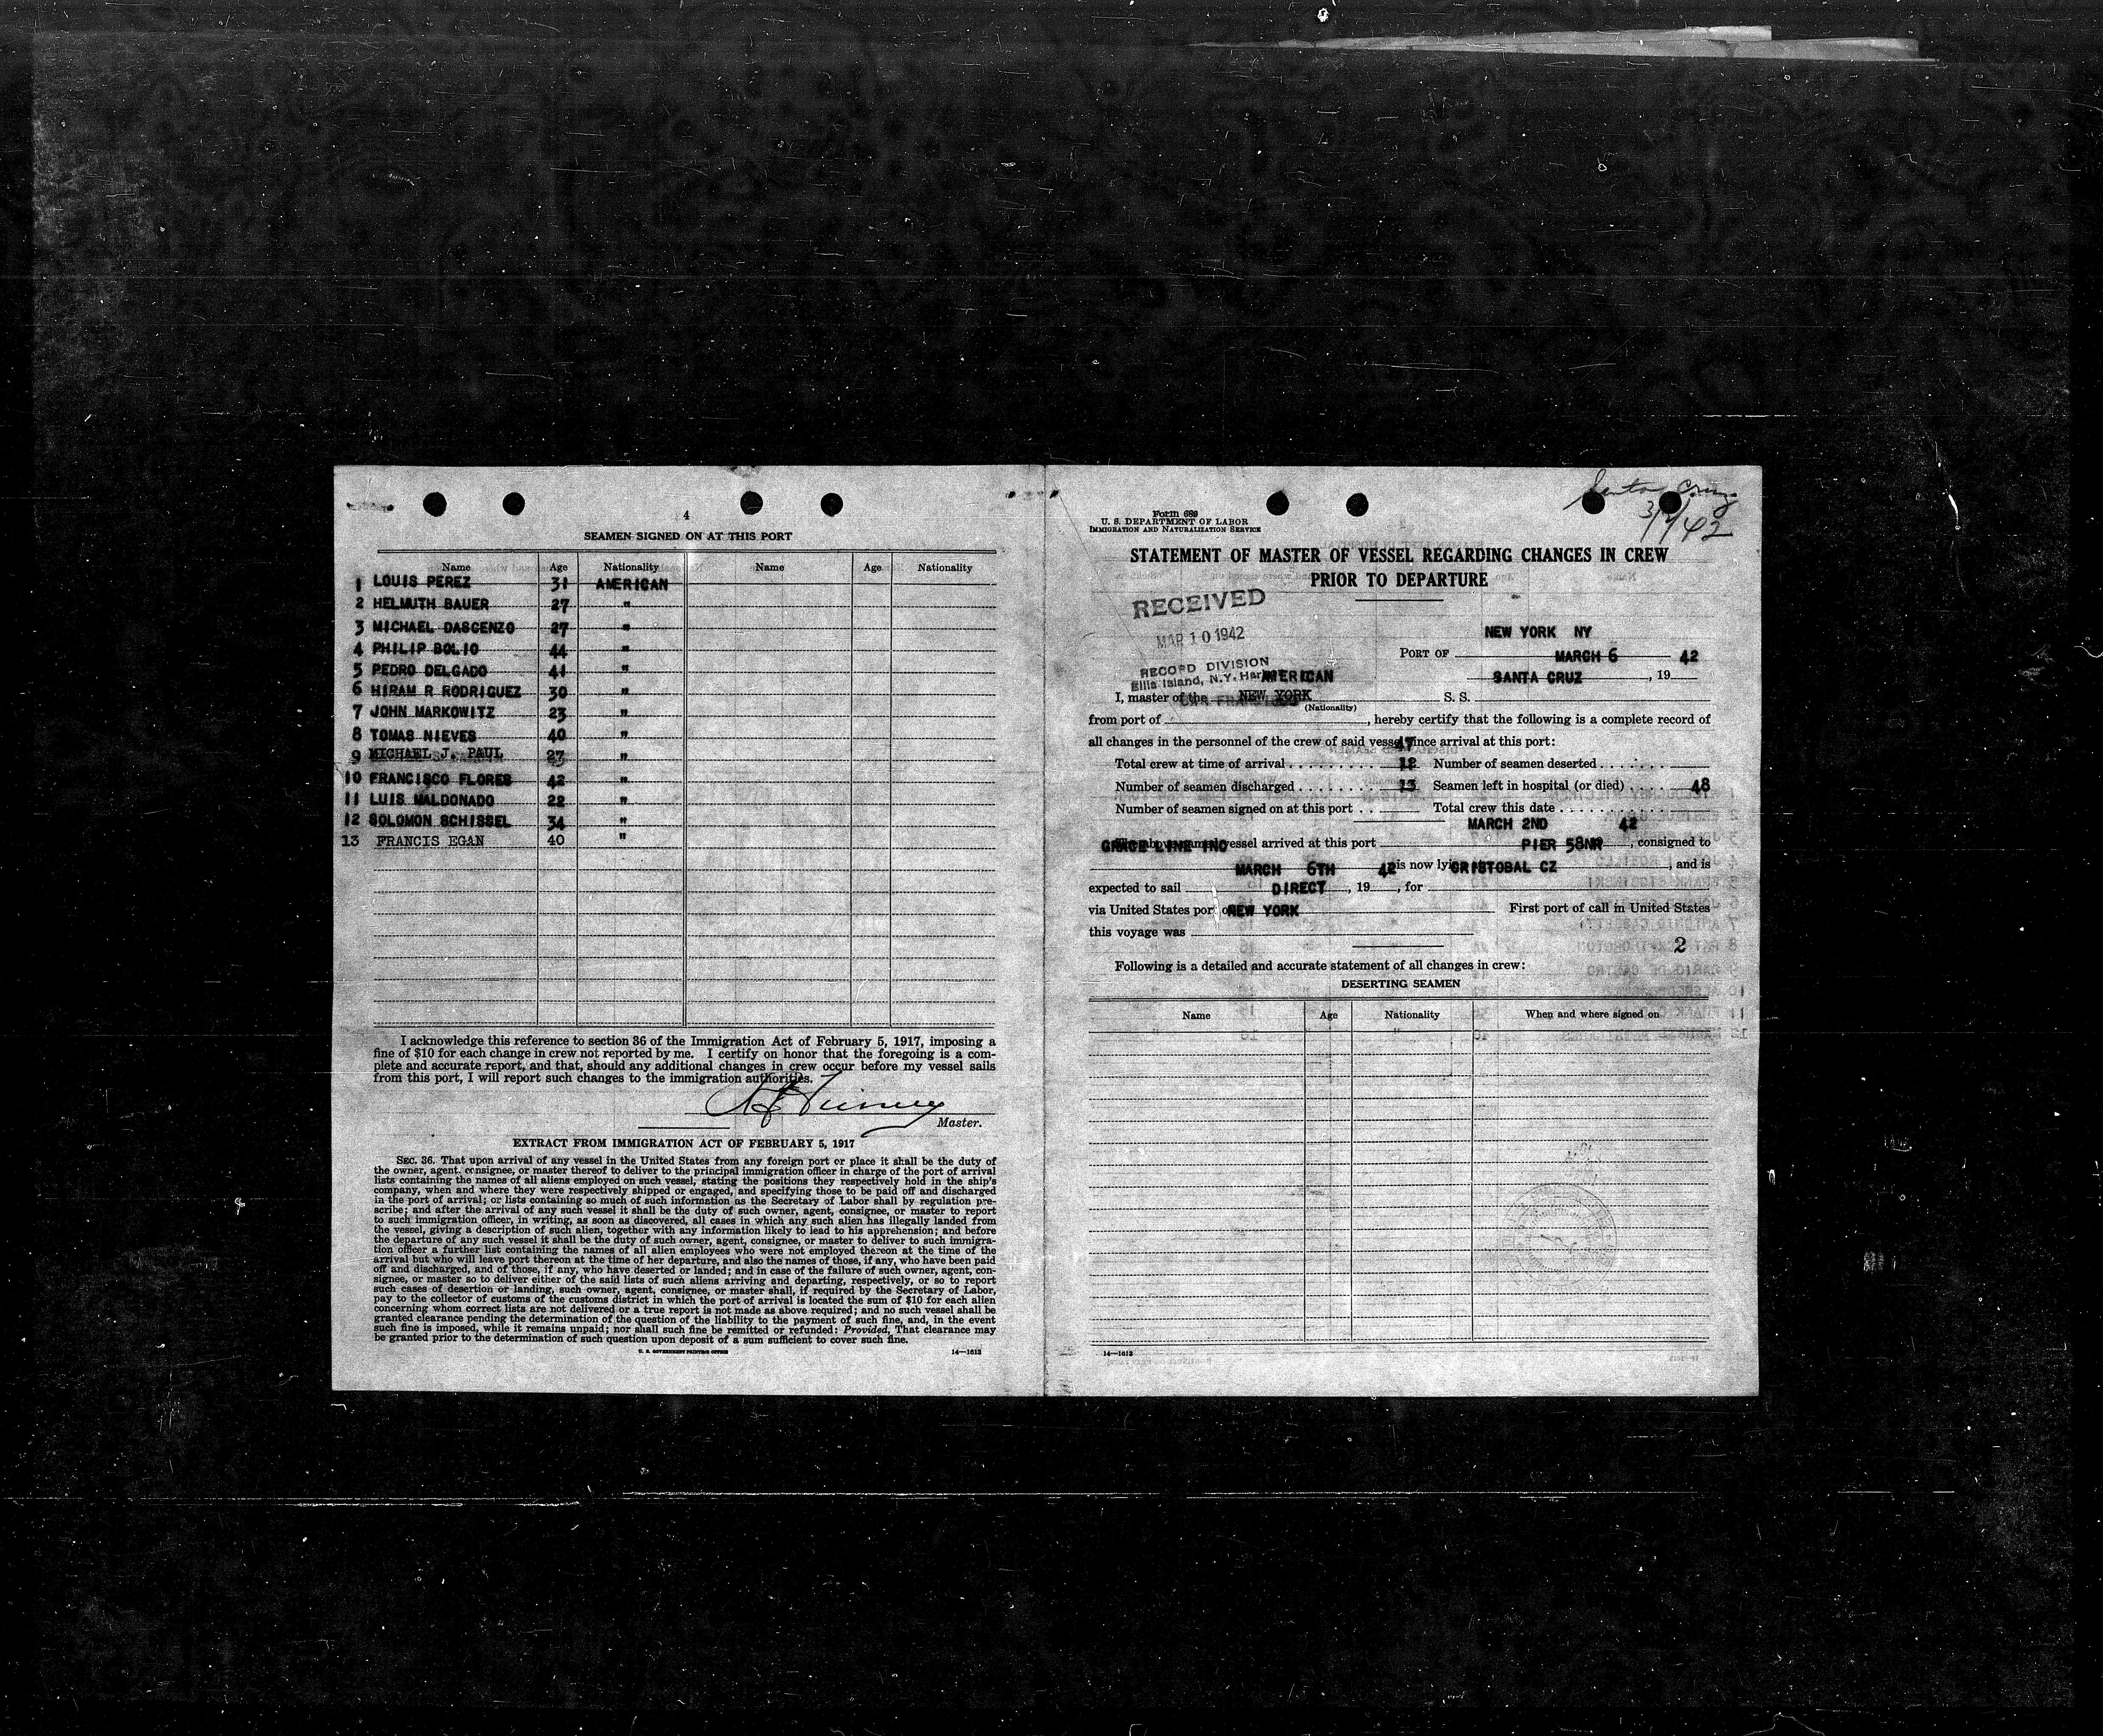 4
SEAMEN SIGNED ON AT THIS PORT
Name Age Nationality Name Age Nationality
1 LOUIS PEREZ 31 AMERICAN
2 HELMUTH BAUER 27 "
3 MICHAEL DASCENZO 27 "
4 PHILIP BOLIO 44 "
5 PEDRO DELGADO 41 "
6 HIRAM R RODRIGUEZ 30 "
7 JOHN MARKOWITZ 23 "
8 TOMAS NIEVES 40 "
9 MICHAEL J. PAUL 27 "
10 FRANCISCO FLORES 42 "
11 LUIS MALDONADO 22 "
12 SOLOMON SCHISSEL 34 "
13 FRANCIS EGAN 40 "
I acknowledge this reference to section 36 of the Immigration Act of February 5, 1917, imposing a
fine of $10 for each change in crew not reported by me. I certify on honor that the foregoing is a com-
plete and accurate report, and that, should any additional changes in crew occur before my vessel sails
from this port, I will report such changes to the immigration authorities.
Master.
EXTRACT FROM IMMIGRATION ACT OF FEBRUARY 5, 1917
SEC. 36. That upon arrival of any vessel in the United States from any foreign port or place it shall be the duty of
the owner, agent, consignee, or master thereof to deliver to the principal immigration officer in charge of the port of arrival
lists containing the names of all aliens employed on such vessel, stating the positions they respectively hold in the ship's
company, when and where they were respectively shipped or engaged, and specifying those to be paid off and discharged
in the port of arrival; or lists containing so much of such information as the Secretary of Labor shall by regulation pre-
scribe; and after the arrival of any such vessel it shall be the duty of such owner, agent, consignee, or master to report
to such immigration officer, in writing, as soon as discovered, all cases in which any such alien has illegally landed from
the vessel, giving a description of such alien, together with any information likely to lead to his apprehension; and before
the departure of any such vessel it shall be the duty of such owner, agent, consignee, or master to deliver to such immigra-
tion officer a further list containing the names of all alien employees who were not employed thereon at the time of the
arrival but who will leave port thereon at the time of her departure, and also the names of those, if any, who have been paid
off and discharged, and of those, if any, who have deserted or landed; and in case of the failure of such owner, agent, con-
signee, or master so to deliver either of the said lists of such aliens arriving and departing, respectively, or so to report
such cases of desertion or landing, such owner, agent, consignee, or master shall, if required by the Secretary of Labor,
pay to the collector of customs of the customs district in which the port of arrival is located the sum of $10 for each alien
concerning whom correct lists are not delivered or a true report is not made as above required; and no such vessel shall be
granted clearance pending the determination of the question of the liability to the payment of such fine, and, in the event
such fine is imposed, while it remains unpaid; nor shall such fine be remitted or refunded: Provided, That clearance may
be granted prior to the determination of such question upon deposit of a sum sufficient to cover such fine.
U. S. GOVERNMENT PRINTING OFFICE 14—1613
Santa Cruz
Form 689
U. S. DEPARTMENT OF LABOR
IMMIGRATION AND NATURALIZATION SERVICE
STATEMENT OF MASTER OF VESSEL REGARDING CHANGES IN CREW
PRIOR TO DEPARTURE
RECEIVED
MAR 10 1942
RECORD DIVISION
Ellis Island, N.Y. Har
NEW YORK NY
PORT OF MARCH 6 42
AMERICAN SANTA CRUZ , 19
I, master of the NEW YORK S. S.
(Nationality)
from port of , hereby certify that the following is a complete record of
all changes in the personnel of the crew of said vessel since arrival at this port:
47
Total crew at time of arrival 12 Number of seamen deserted
Number of seamen discharged 13 Seamen left in hospital (or died) 48
Number of seamen signed on at this port Total crew this date
MARCH 2ND 42
The above-named vessel arrived at this port PIER 58NR , consigned to
GRACE LINE INC
MARCH 6TH 42 is now lying CRISTOBAL CZ , and is
expected to sail DIRECT , 19 , for
via United States port of NEW YORK First port of call in United States
this voyage was
2
Following is a detailed and accurate statement of all changes in crew:
DESERTING SEAMEN
Name Age Nationality When and where signed on
14—1613